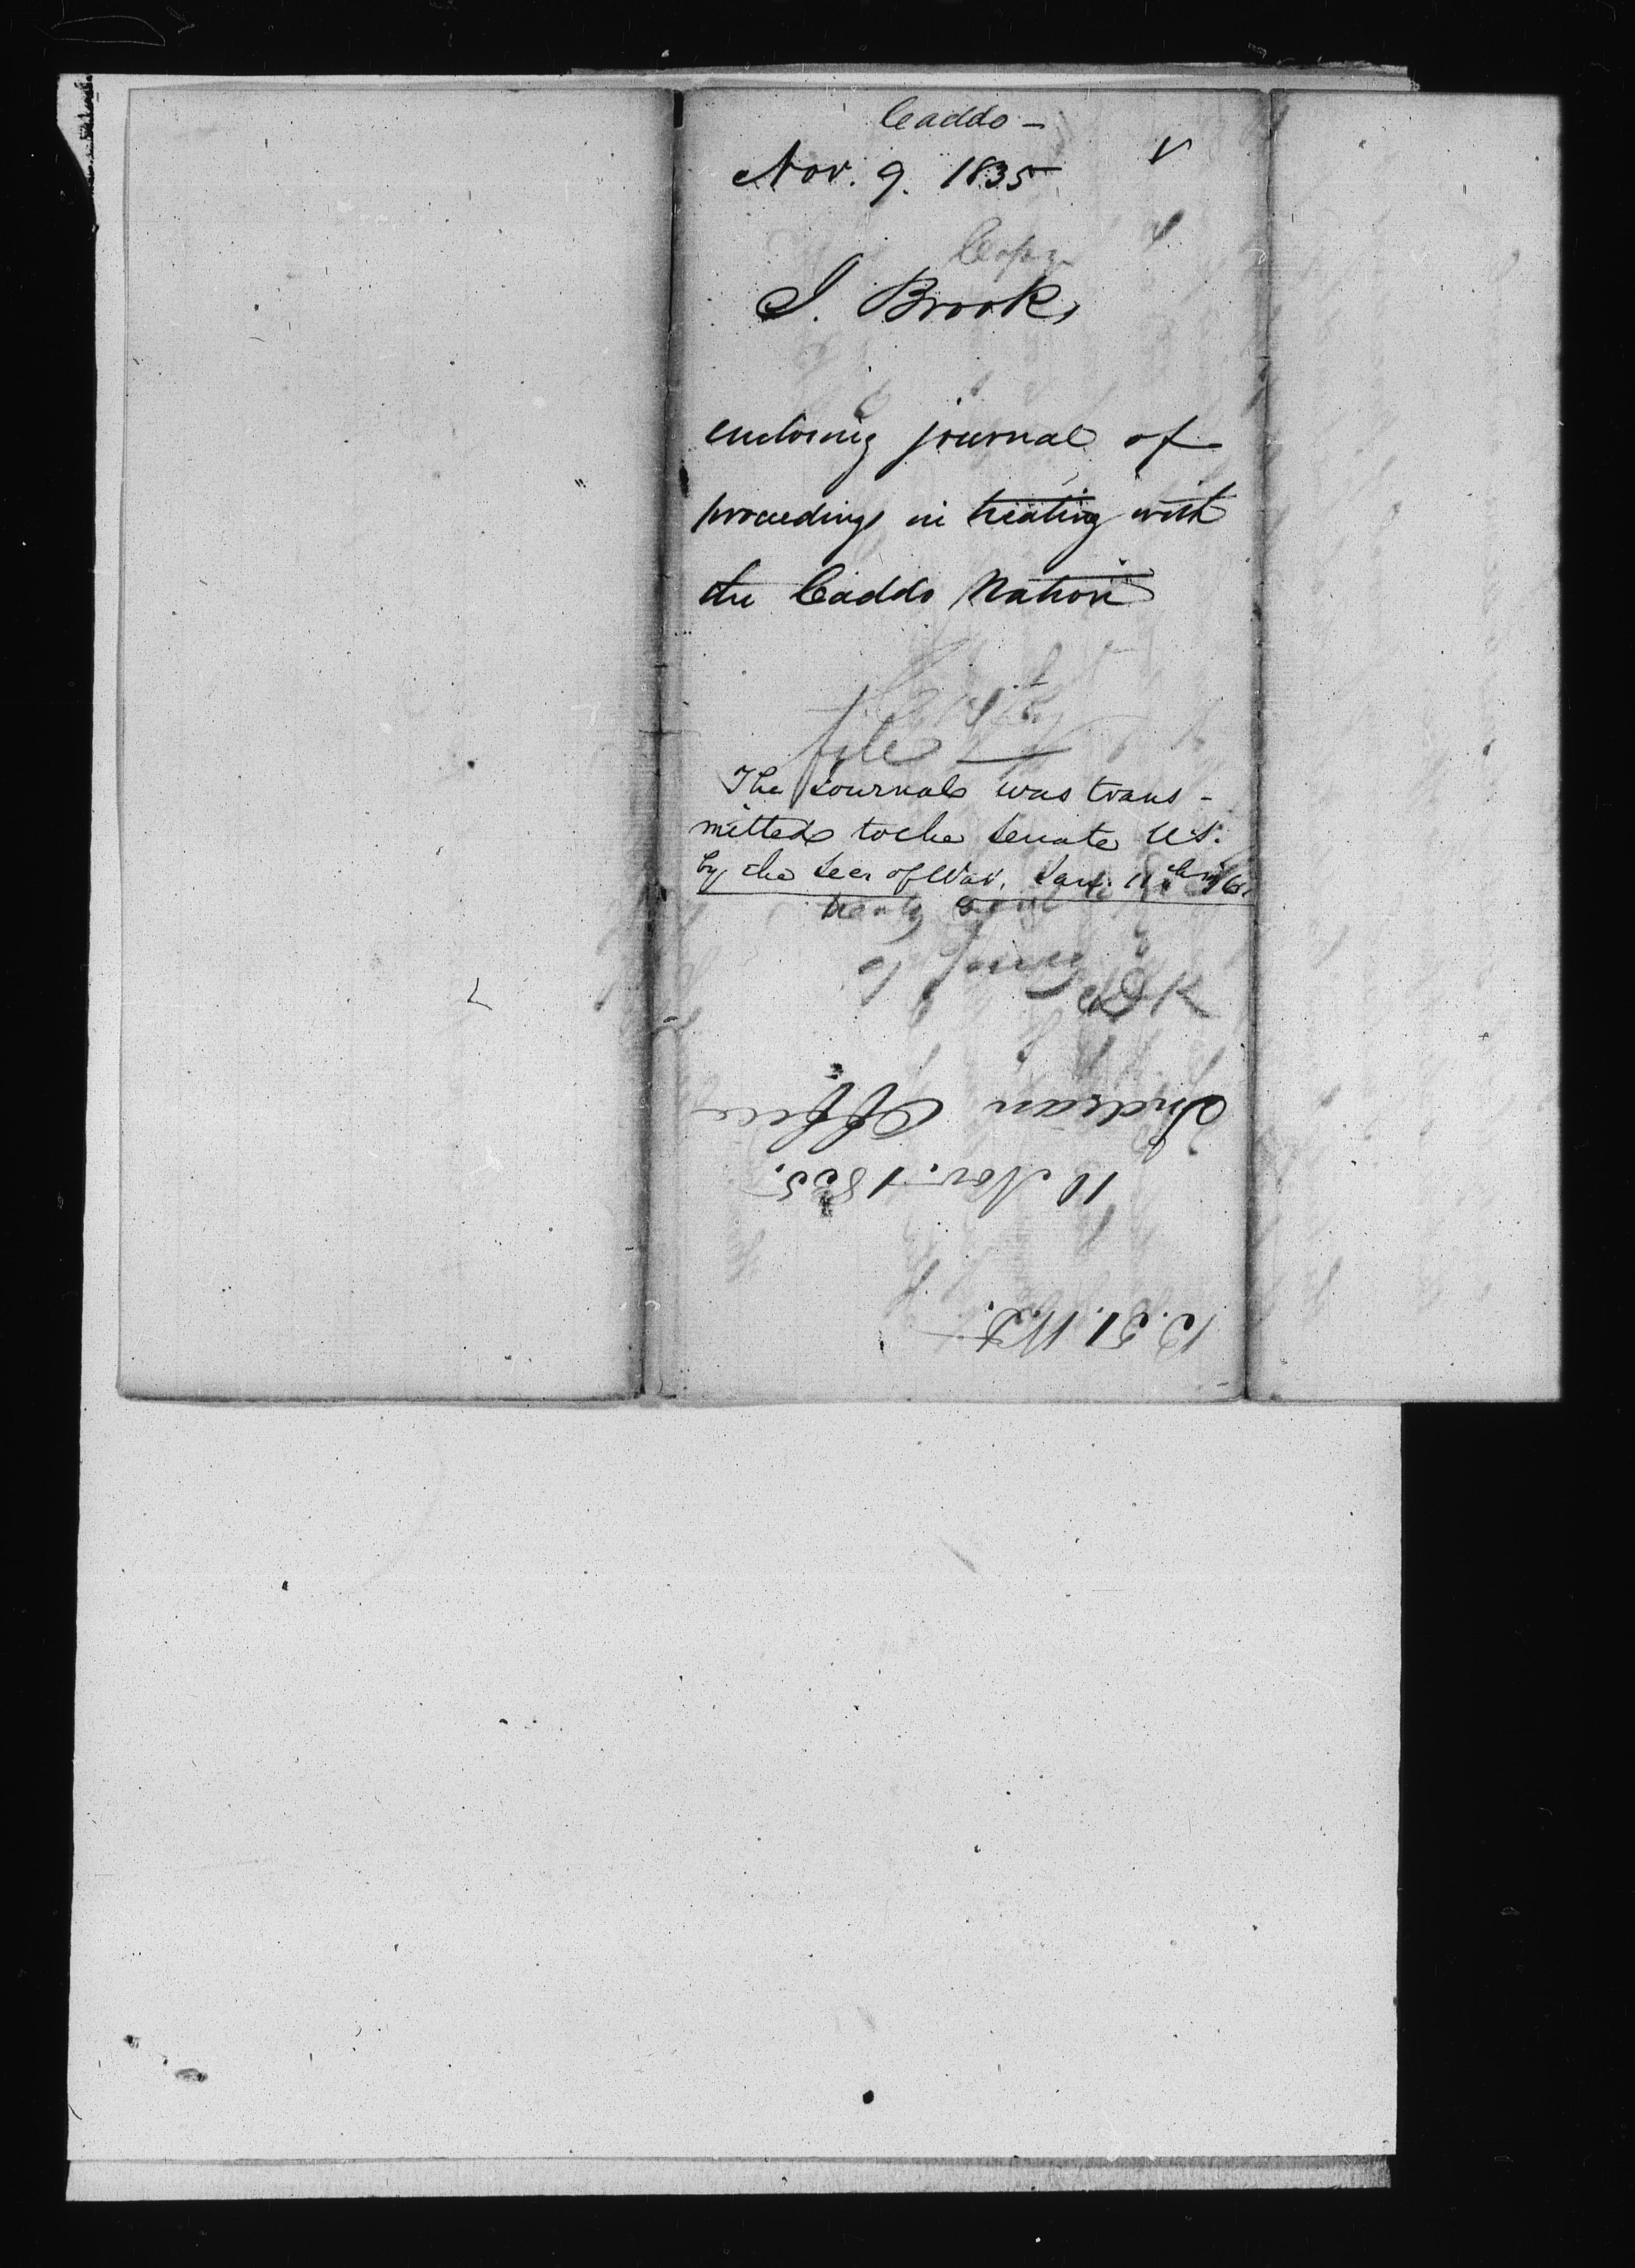 Caddo -
Nov. 9. 1835
Copy
J. Brooks
enclosing journal of
proceedings in treating with
the Caddo Nation
file
The Journal was trans-
mitted to the Senate U.S.
by the Sec of War, Jan. 11th
DK
Indian Office
11 Nov. 1835.